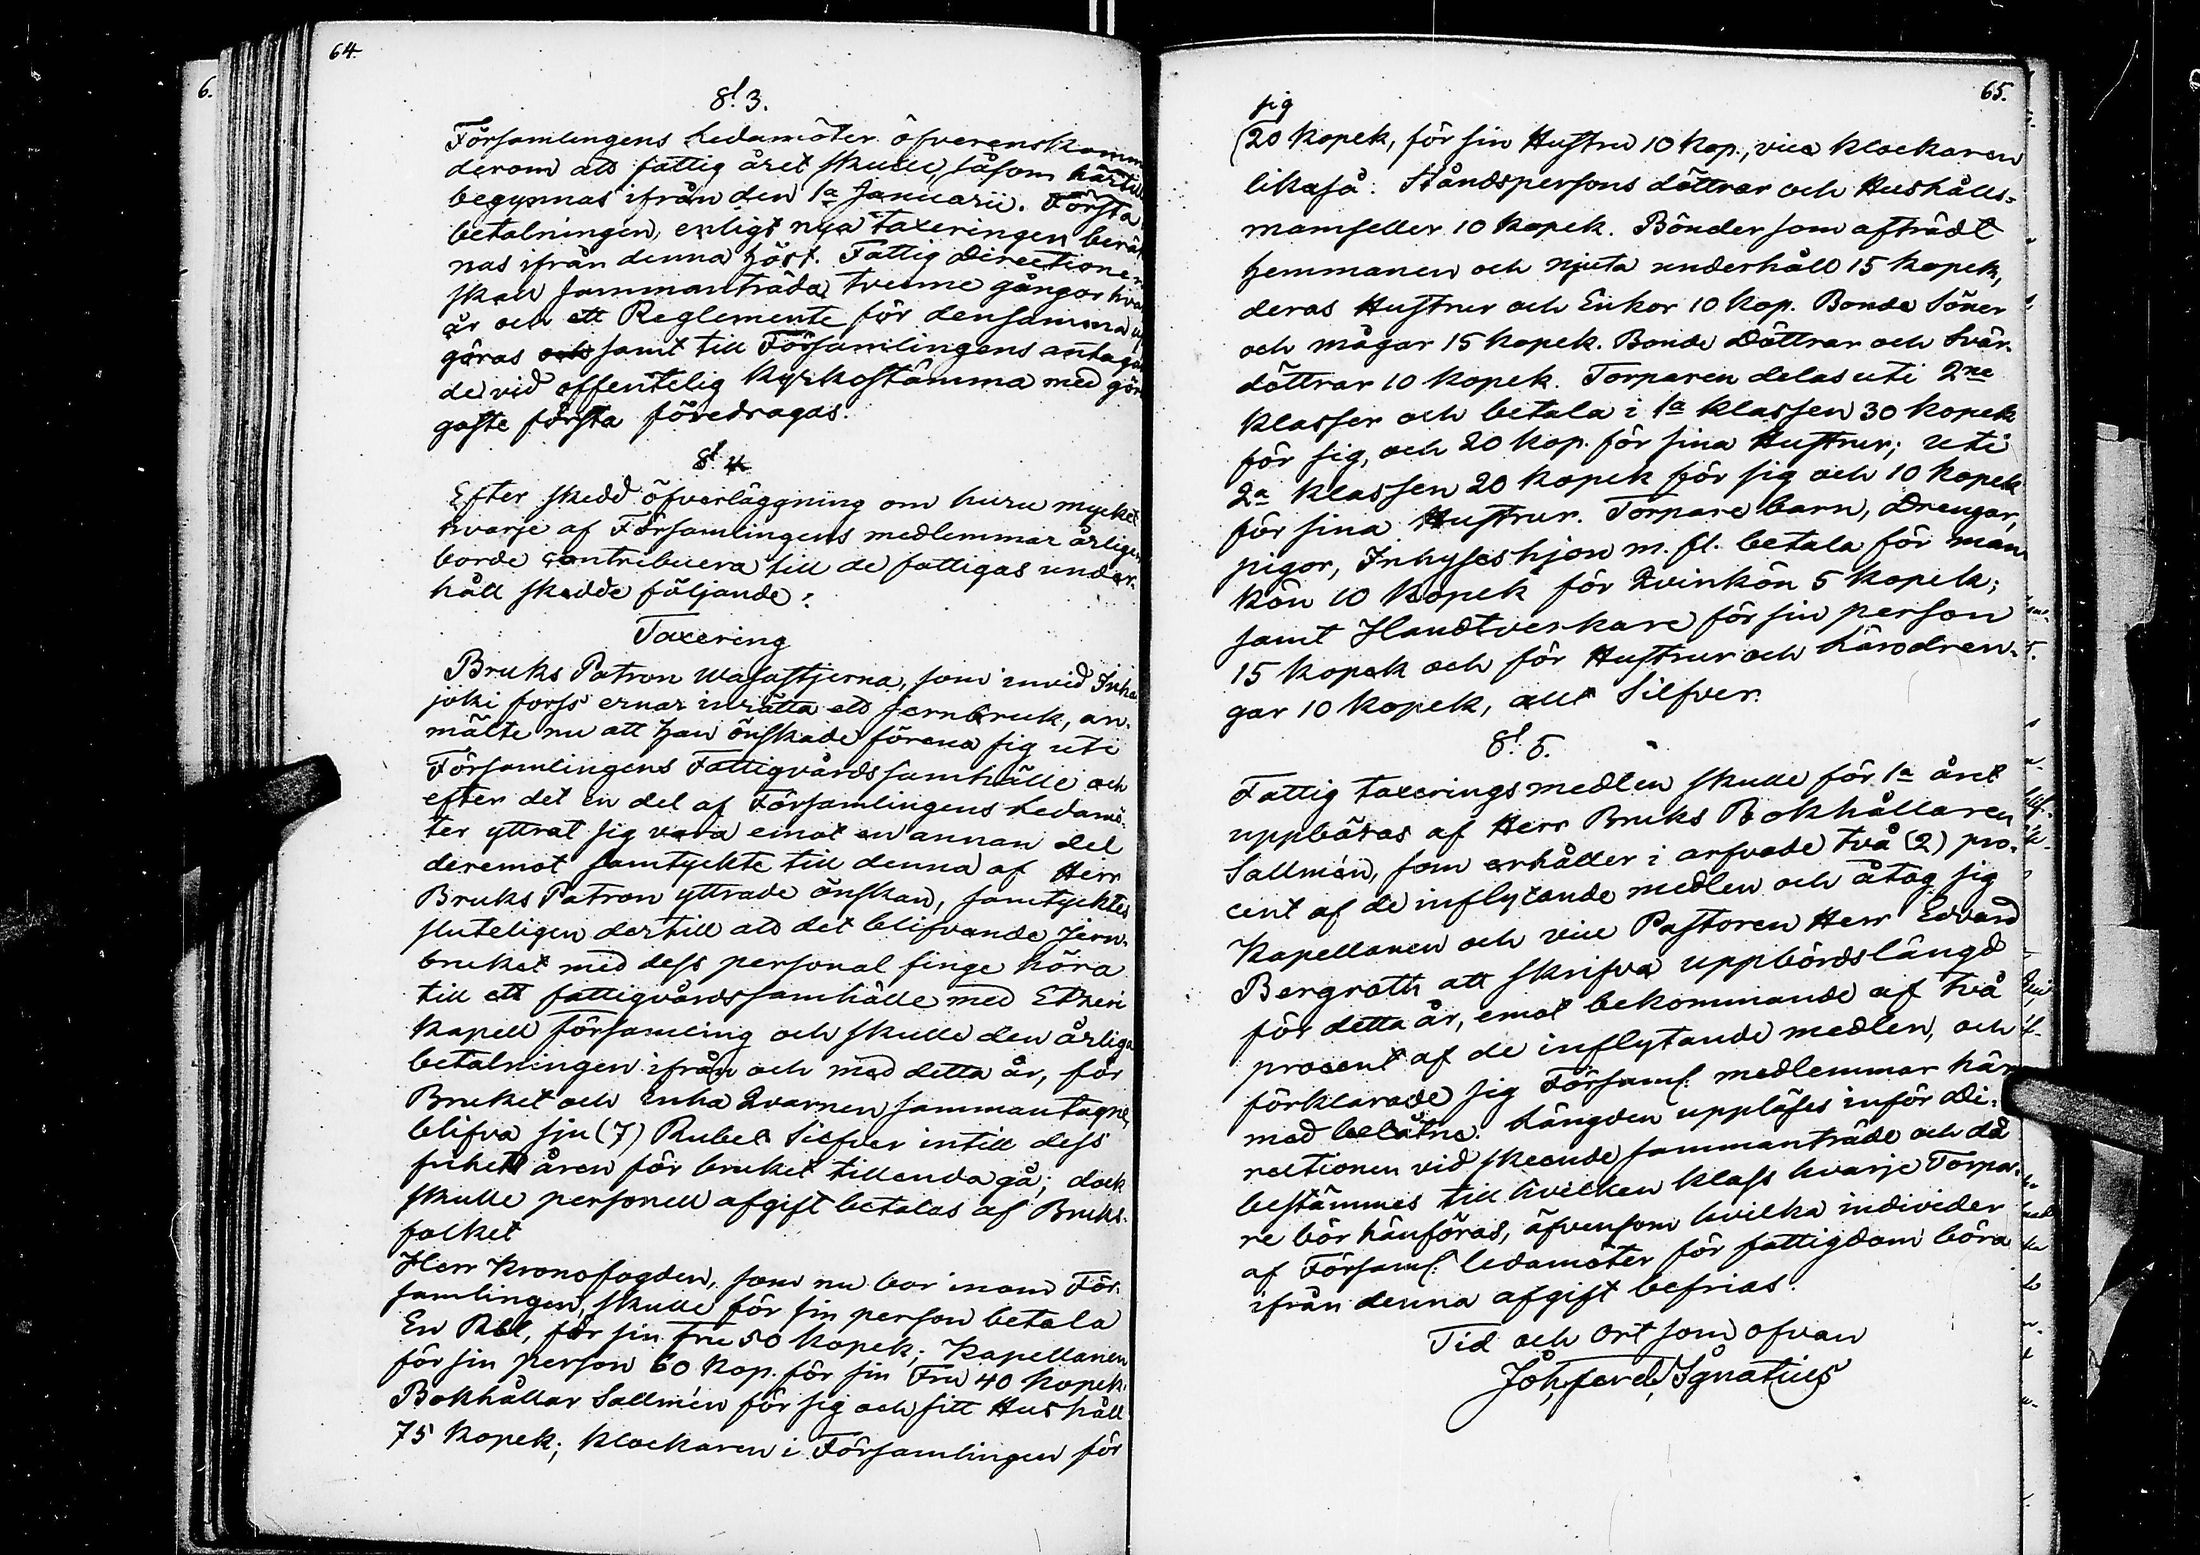 64.
§ 3.
Församlingens Ledamöter öfverenskommo
derom att fattig året skulle, såsom härtill
begynnas ifrån den 1a Januarii. Första
betalningen, enligt nya taxeringen beräk
nas ifrån denna höst. Fattig Directionen
skall sammanträda tvenne gångor hvar
år och ett Reglemente för densamma up
göras och samt till Församlingens antagan
de vid offentelig Kyrkostämma med gör
gaste första föredragas.
§ 4
Efter skedd öfverläggning om huru mycket
hvarje af Församlingens medlemmar årligen
borde contribuera till de fattigas under-
håll skedde följande:
Taxering
Bruks Patron Wasastjerna, som invid Inha
joki forss ernar inrätta ett Jernbruk, an-
mälte nu att han önskade förena sig uti
Församlingens Fattigvårdssamhälle och
efter det en del af Församlingens Ledamö-
ter yttrat sig vara emot en annan del
deremot samtyckte till denna af Herr
Bruks Patron yttrade önskan, samtycktes
sluteligen dertill att det blifvande Jern-
bruket med dess personal finge höra
till ett fattigvårdssamhälle med Etseri
Kapell församling och skulle den årliga
betalningen ifrån och med detta år, för
Bruket och Inha Qvarnen sammantagne
blifva sju (7) Rubel Silfver intill dess
frihets åren för bruket tillenda gå; dock
skulle personell afgift betalas af Bruks-
folket
Herr Kronofogden, som nu bor inom För-
samlingen, skulle för sin person betala
En Rbl, för sin Fru 50 kopek; Kapellanen
för sin person 60 kop. för sin Fru 40 kopek.
Bokhållar Sallmén för sig och sitt Hushåll
75 Kopek; klockaren i Församlingen för
65.
sig
(20 kopek, för sin Hustru 10 kop., vice klockaren
likaså. Ståndspersons döttrar och Hushålls-
mamseller 10 kopek. Bönder som afträdt
hemmanen och njuta underhåll 15 kopek,
deras Hustrur och Enkor 10 kop. Bonde Söner
och mågar 15 kopek. Bonde Döttrar och Svär-
döttrar 10 kopek. Torparen delas uti 2ne
klasser och betala i 1a klassen 30 kopek
för sig, och 20 kop. för sina Hustrur; uti
2a klassen 20 kopek för sig och 10 kopek
för sina Hustrur. Torpare barn, Drengar,
pigor, Inhyseshjon m. fl. betala för man
kön 10 kopek för Qvinkön 5 kopek;
samt Handtverkare för sin person
15 kopek och för Hustrur och Lärodren-
gar 10 kopek, allt Silfver.
§ 5.
Fattig taxeringsmedlen skulle för 1a året
uppbäras af Herr Bruks Bokhållaren
Sallmén, som erhåller i arfvode två (2) pro-
cent af de inflytande medlen och åtog sig
Kapellanen och vice Pastoren Herr Edvard
Bergroth att skrifva uppbördslängd
för detta år, emot bekommande af två
procent af de inflytande medlen, och
förklarade sig Församl. medlemmar här
med belåtne. Längden uppläses inför Di-
rectionen vid skeende sammanträde och då
bestämmes till hvilken klass hvarje Torpa-
re bör hänföras, äfvensom hvilka individer
af Församl. ledamöter för fattigdom böra
ifrån denna afgift befrias.
Tid och Ort som ofvan
Joh. Ferd. Ignatius